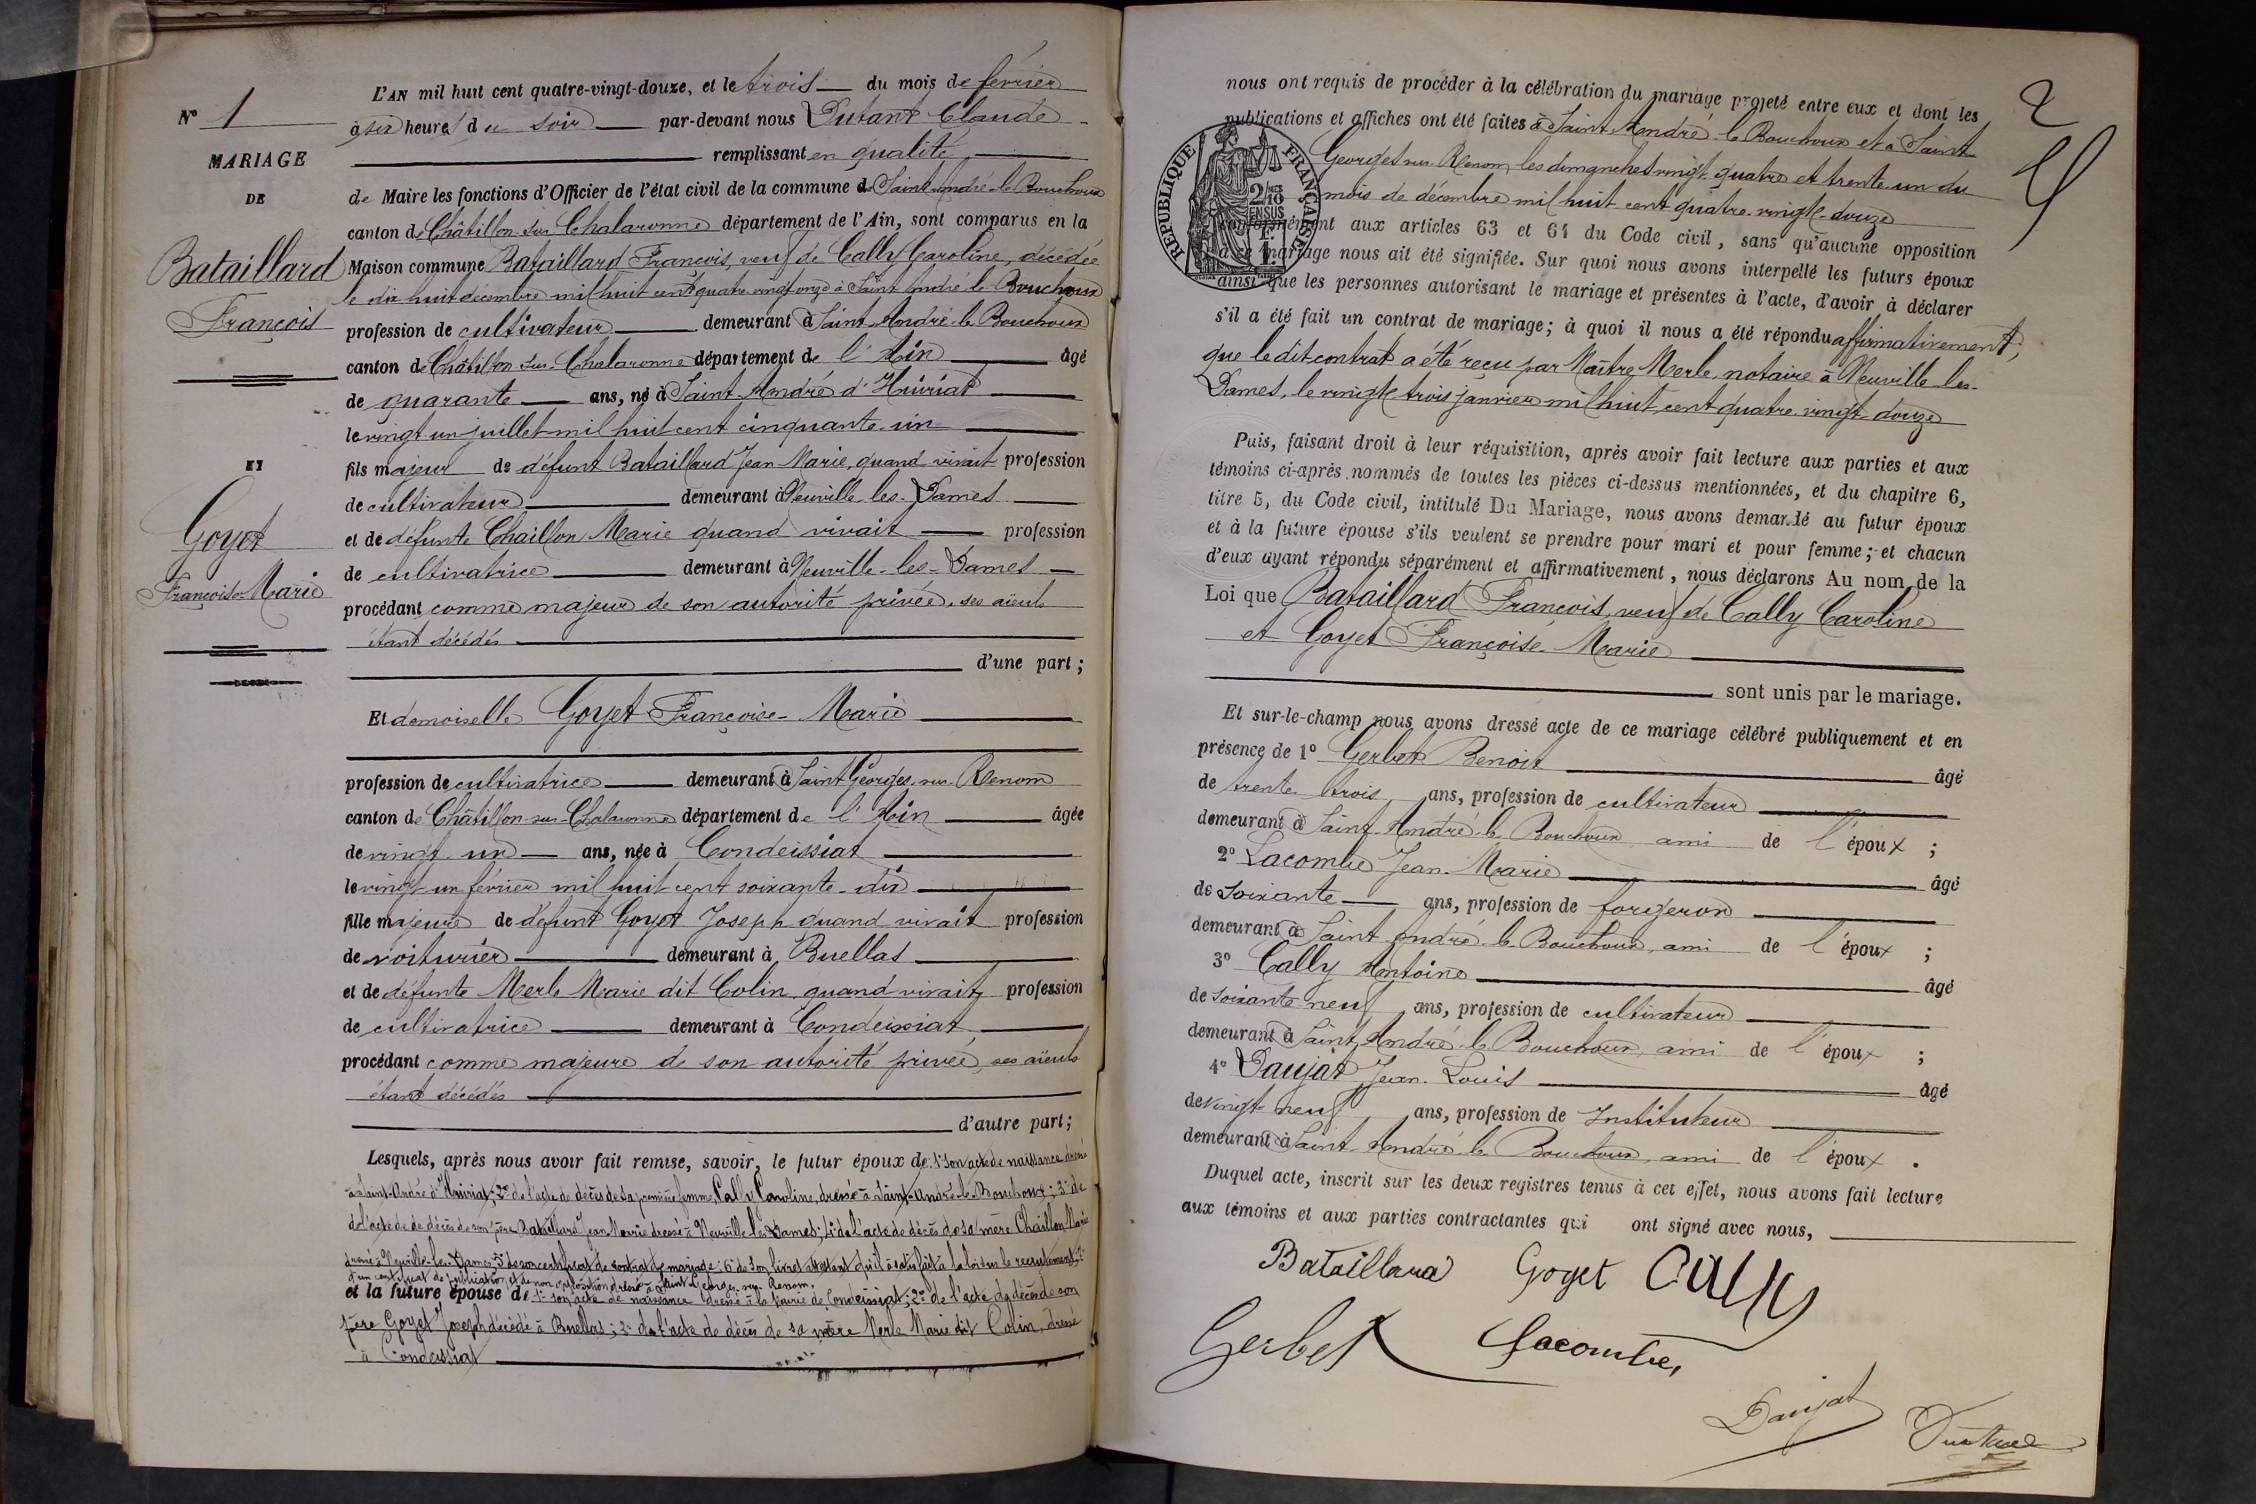 N° 1
MARIAGE
DE
Bataillard
François
ET
Goyet
Françoise Marie
L'AN mil huit cent quatre-vingt-douze, et le trois du mois de février
à six heures du soir par-devant nous Dutant Claude
remplissant en qualité
de Maire les fonctions d'Officier de l'état civil de la commune de Saint-André-le-Bouchoux
canton de Châtillon-sur-Chalaronne département de l'Ain, sont comparus en la
Maison commune Bataillard François, veuf de Cally Caroline, décédée
le dix huit décembre mil huit cent quatre vingt onze à Saint André-le-Bouchoux
profession de cultivateur demeurant à Saint-André-le-Bouchoux
canton de Châtillon-sur-Chalaronne département de l'Ain âgé
de quarante ans, né à Saint-André d'Huiriat
le vingt un juillet mil huit cent cinquante-un
fils majeur de défunt Bataillard Jean Marie, quand vivait profession
de cultivateur demeurant à Neuville-les-Dames
et de défunte Chaillon Marie quand vivait profession
de cultivatrice demeurant à Neuville-les-Dames
procédant comme majeur de son autorité privée, ses aïeuls
étant décédés
d'une part ;
Et demoiselle Goyet Françoise-Marie
profession de cultivatrice demeurant à Saint Georges-sur-Renom
canton de Châtillon-sur-Chalaronne département de l'Ain âgée
de vingt-un ans, née à Condeissiat
le vingt-un février mil huit cent soixante-dix
fille majeure de défunt Goyet Joseph quand vivait profession
de voiturier demeurant à Buellas
et de défunte Merle Marie dit Colin, quand vivait profession
de cultivatrice demeurant à Condeissiat
procédant comme majeure de son autorité privée, ses aïeuls
étant décédés
d'autre part ;
Lesquels, après nous avoir fait remise, savoir, le futur époux de: 1° son acte de naissance dressé
à Saint-André d'Huiriat; 2° de l'acte de décès de sa première femme, Cally Caroline, dressé à Saint-André-le-Bouchoux; 3° de
de l'acte de de décès de son père Bataillard Jean Marie dressé à Neuville les Dames; 4° de l'acte de décès de sa mère Chaillon Marie
dressé à Neuville-les-Dames; 5° de son certificat de contrat de mariage; 6° de son livret attestant qu'il a satisfait à la loi sur le recrutement; 7°
d'un certificat de publication et de non opposition dressé à Saint Georges-sur-Renom.
et la future épouse de 1° son acte de naissance dressé à la mairie de Condeissiat; 2° de l'acte de décès de son
père Goyet Joseph décédé à Buellas; 3° de l'acte de décès de sa mère Merle Marie dit Colin, dressé
à Condeissiat
2
nous ont requis de procéder à la célébration du mariage projeté entre eux et dont les
publications et affiches ont été faites à Saint-André-le-Bouchoux et à Saint
Georges-sur-Renom, les dimanches vingt-quatre et trente un du
mois de décembre mil huit cent quatre-vingt-douze
conformément aux articles 63 et 64 du Code civil, sans qu'aucune opposition
à ce mariage nous ait été signifiée. Sur quoi nous avons interpellé les futurs époux
ainsi que les personnes autorisant le mariage et présentes à l'acte, d'avoir à déclarer
s'il a été fait un contrat de mariage; à quoi il nous a été répondu affirmativement,
que le dit contrat a été reçu par Maître Merle, notaire à Neuville-les-
Dames, le vingt trois janvier mil huit cent quatre-vingt-douze
RÉPUBLIQUE FRANÇAISE
2/10
EN SUS
1 F.
Puis, faisant droit à leur réquisition, après avoir fait lecture aux parties et aux
témoins ci-après nommés de toutes les pièces ci-dessus mentionnées, et du chapitre 6,
titre 5, du Code civil, intitulé Du Mariage, nous avons demandé au futur époux
et à la future épouse s'ils veulent se prendre pour mari et pour femme ; et chacun
d'eux ayant répondu séparément et affirmativement, nous déclarons Au nom de la
Loi que Bataillard François, veuf de Cally Caroline
et Goyet Françoise-Marie
sont unis par le mariage.
Et sur-le-champ nous avons dressé acte de ce mariage célébré publiquement et en
présence de 1° Gerbet Benoit âgé
de trente-trois ans, profession de cultivateur
demeurant à Saint-André-le-Bouchoux ami de l'époux ;
2° Lacombe Jean-Marie âgé
de soixante ans, profession de forgeron
demeurant à Saint André-le-Bouchoux, ami de l'époux ;
3° Cally Antoine âgé
de soixante-neuf ans, profession de cultivateur
demeurant à Saint André-le-Bouchoux, ami de l'époux ;
4° Daujat Jean-Louis âgé
de vingt-neuf ans, profession de Instituteur
demeurant à Saint-André-le-Bouchoux, ami de l'époux.
Duquel acte, inscrit sur les deux registres tenus à cet effet, nous avons fait lecture
aux témoins et aux parties contractantes qui ont signé avec nous,
Bataillard Goyet Cally
Gerbet Lacombe,
Daujat